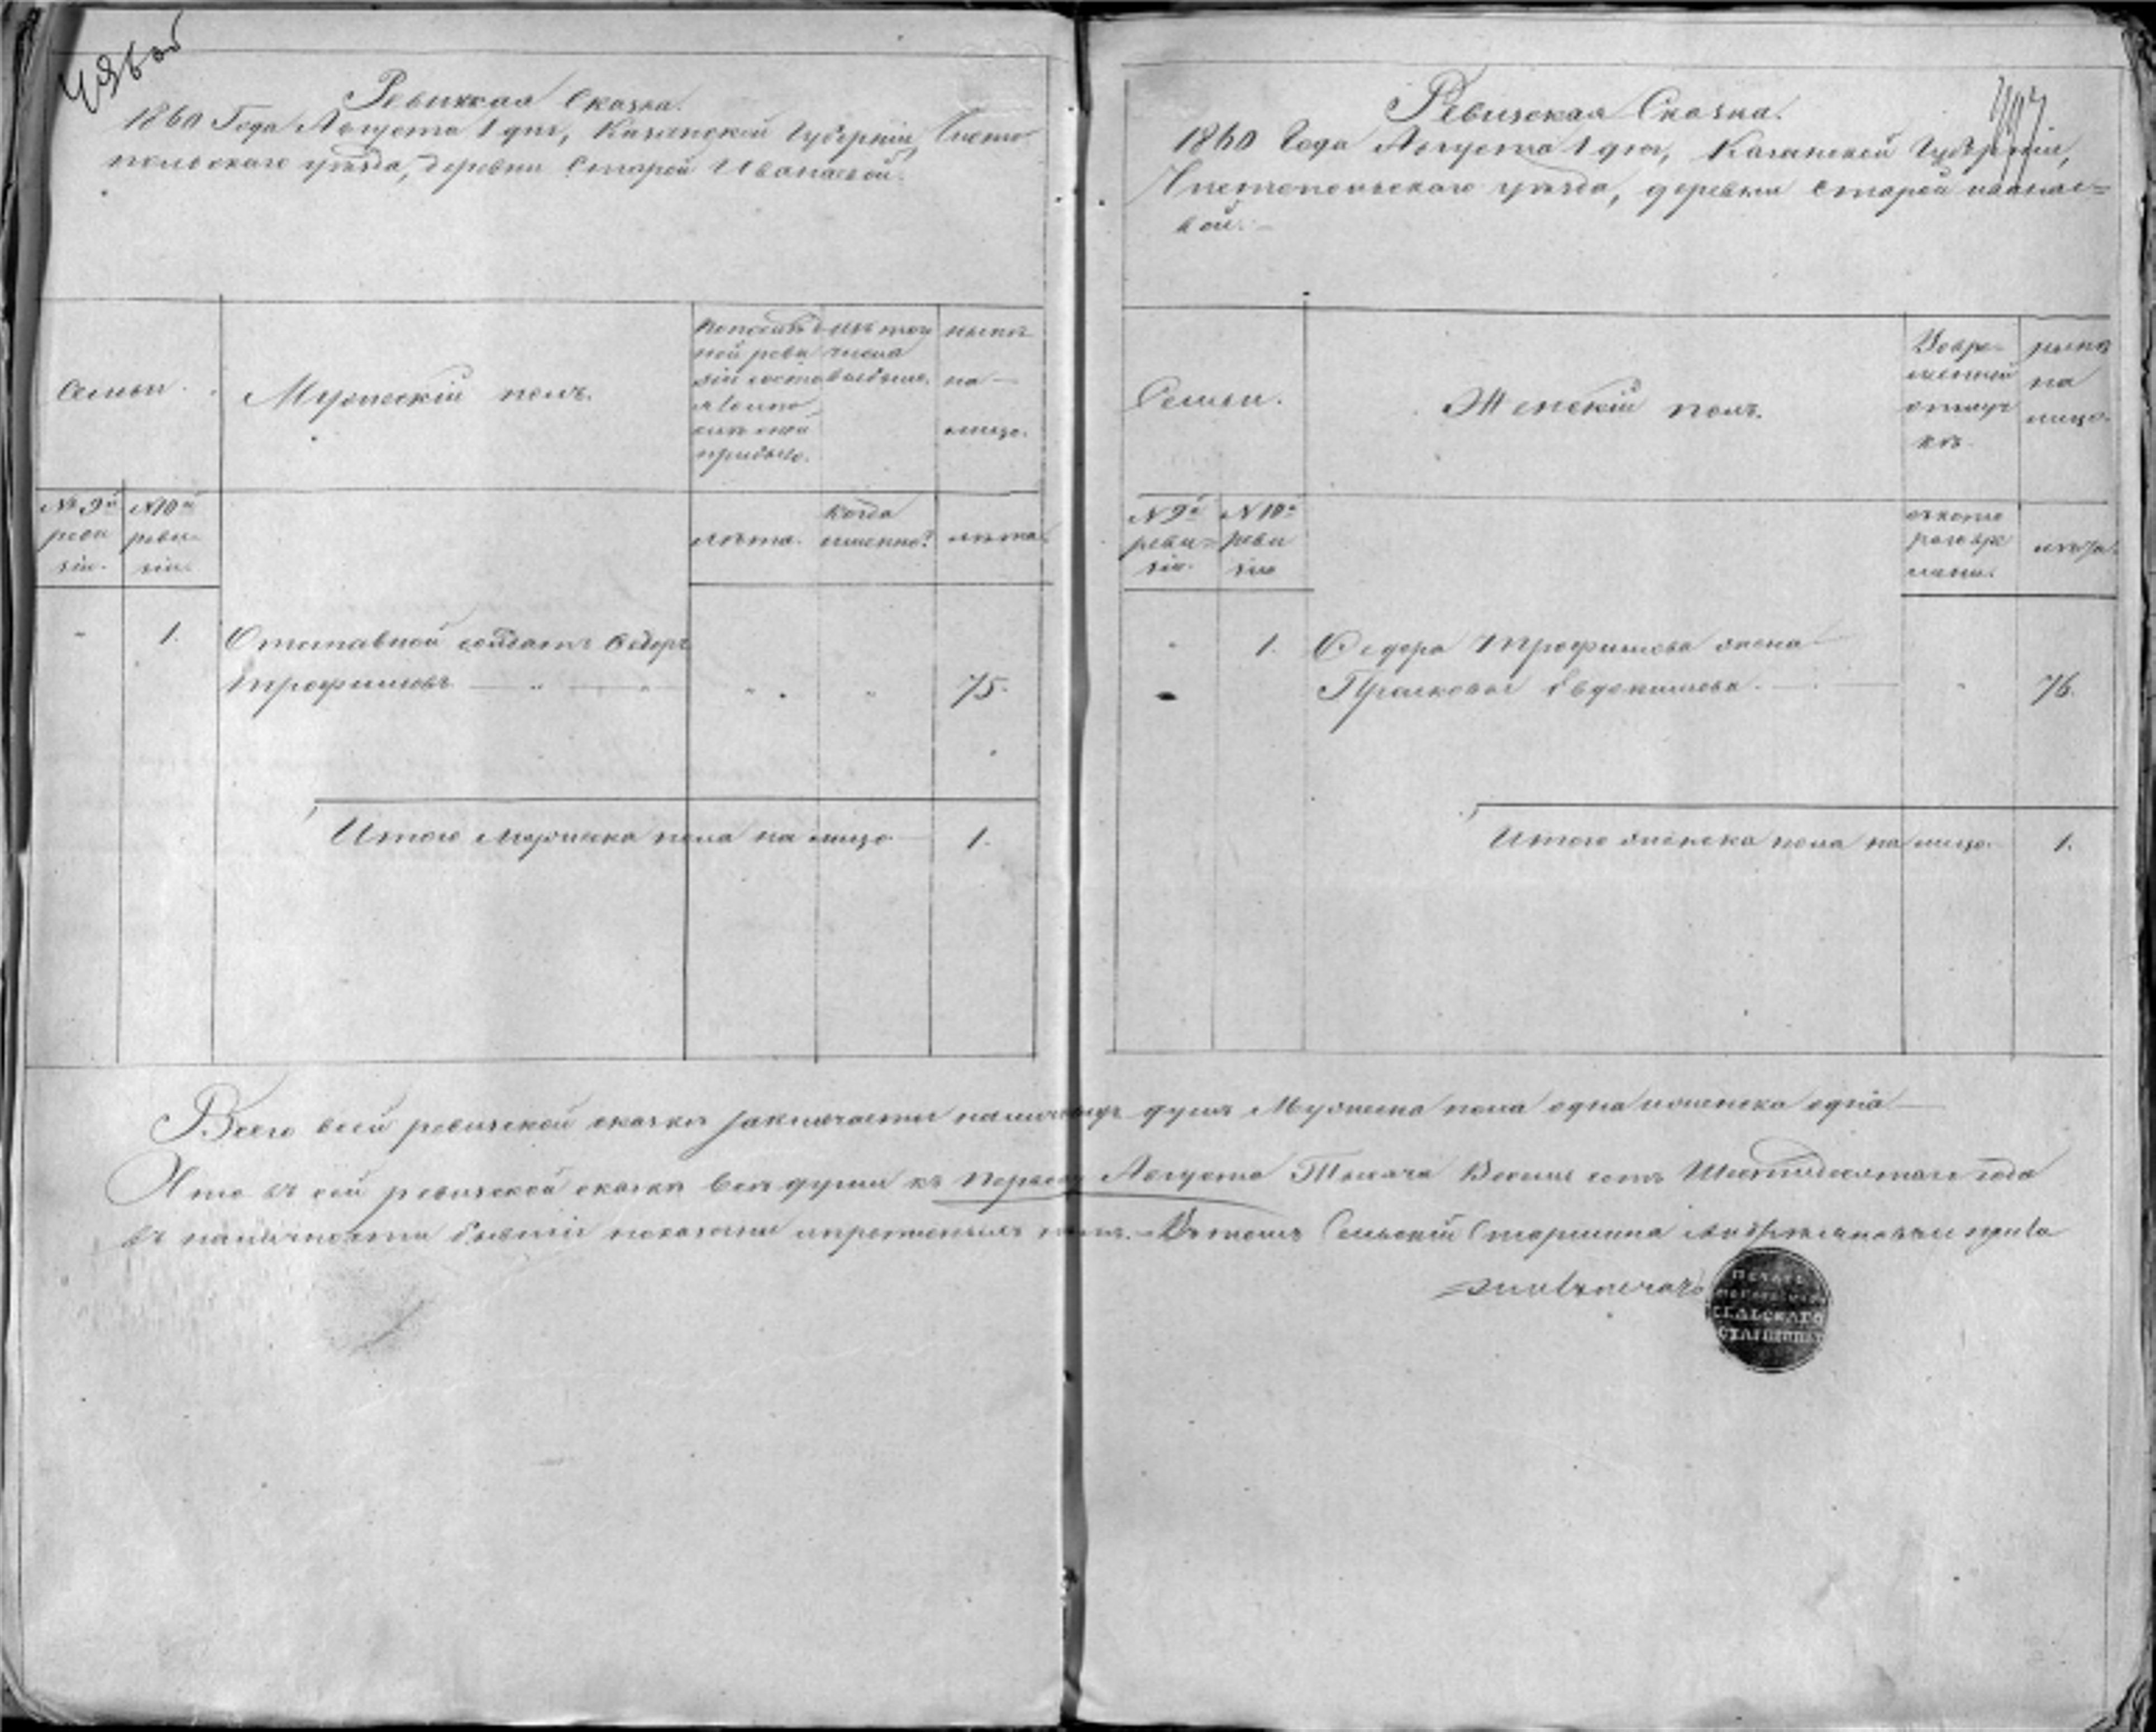 496 об
Ревизская Сказка.
1860 Года Августа 1 дня, Казанской Губерніи, Чисто
польскаго уѣзда, деревни Старой Иванаевой.
Семьи.
Мужескій полъ.
По послѣд
ней реви
зіи состо
яло и по
слѣ оной
прибыло.
Изъ того
числа
выбыло.
нынѣ
на
лицо.
№ 9й
реви
зіи.
№ 10й
реви-
зіи.
лѣта.
когда
именно?
лѣта.
1.
Отставной солдатъ Федоръ
Трофимовъ
75.
Итого Мужеска пола на лицо
1.
497
Ревизская Сказка.
1860 Года Августа 1 дня, Казанской Губерніи,
Чистопольскаго уѣзда, деревни Старой Иванае=
вой.
Семьи.
Женскій полъ.
Во вре-
менной
отлуч
кѣ.
нынѣ
на
лицо.
№ 9й
реви=
зіи.
№ 10й
реви
зіи
съ кото
раго вре
мени.
лѣта.
1.
Федора Трофимова жена
Прасковья Евдокимова.
76.
Итого женска пола на лицо.
1.
Всего въ сей ревизской сказкѣ заключается наличныхъ душъ Мужеска пола одна и женска одна
Что въ сей ревизской сказкѣ всѣ души къ Первому Августа Тысяча Восемь сотъ Шестидесятаго года
въ наличности бывшіи показаны и прописныхъ нѣтъ. - Въ томъ Сельскій Старшина
печать
Печать
Сельскаго
Старшины